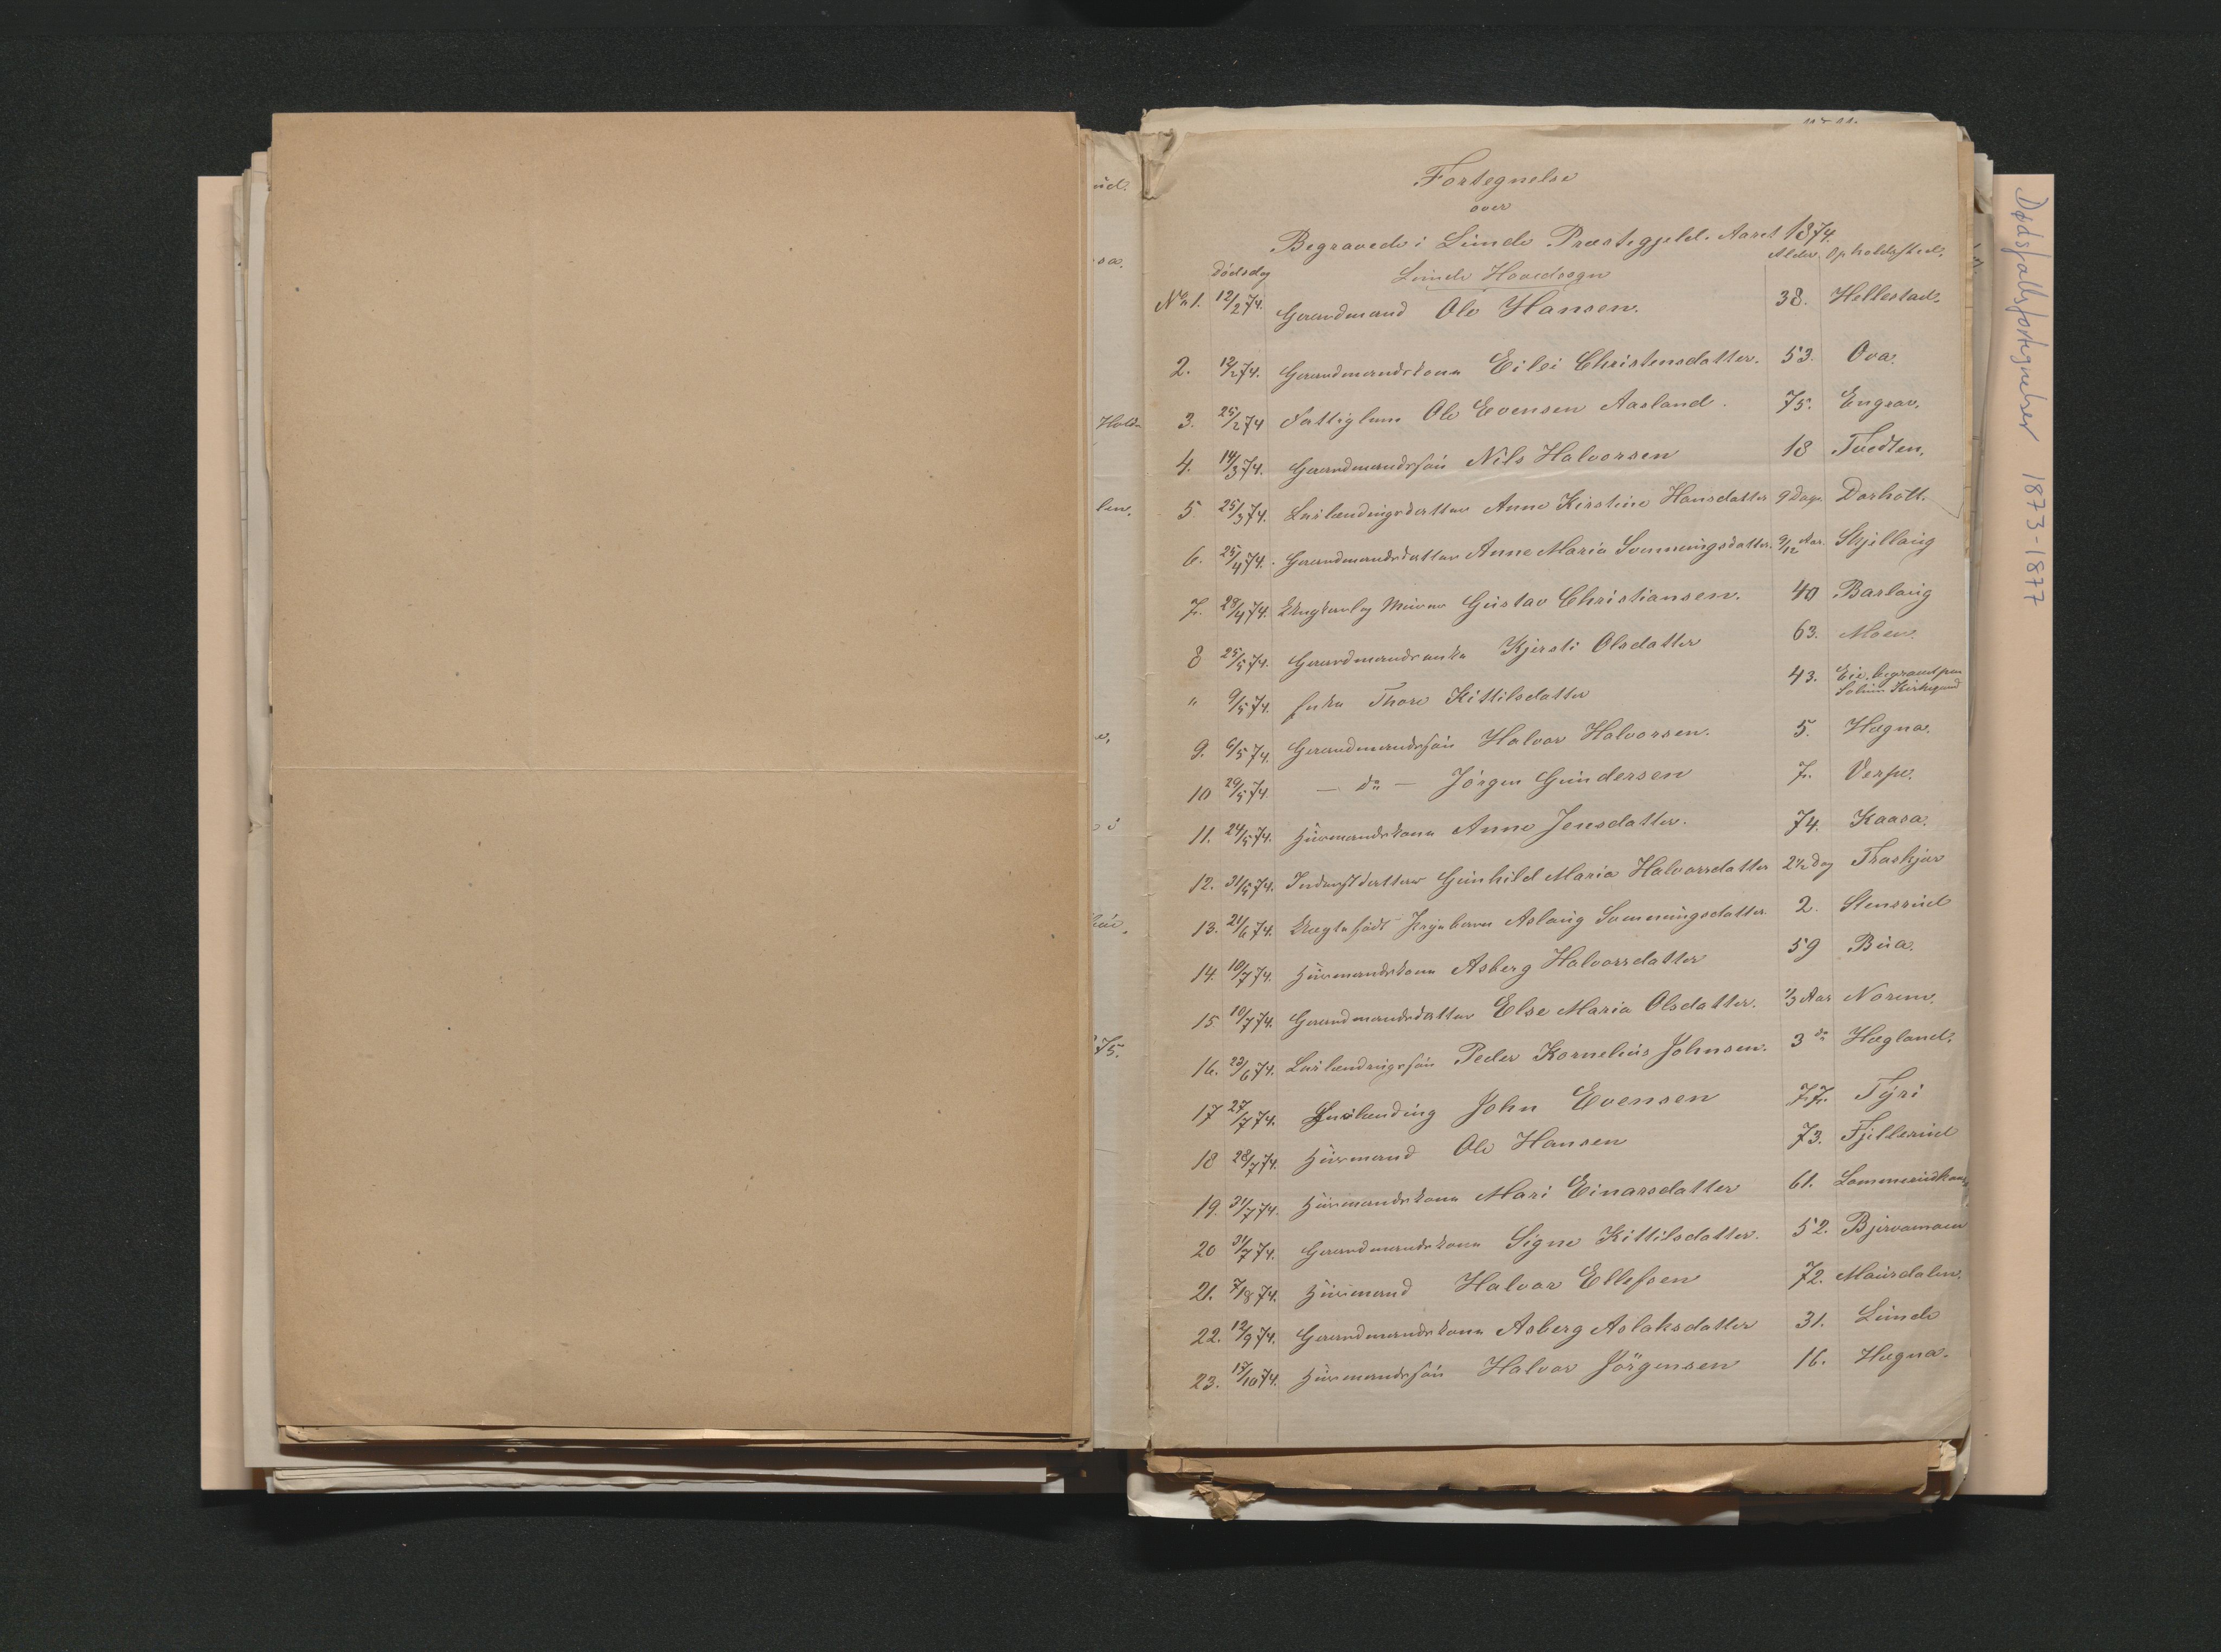 Fortegnelse
over
Begravede i Lunde Præstegjeld. Aaret 1874.
Dödsdag Lunde Hovedsogn Alder. Opholdssted.
No 1. 12/2 74. Gaardmand Ole Hansen. 38. Hellestad.
2. 12/2 74. Gaardmandskone Eilei Christensdatter. 53. Ova.
3. 25/2 74 Fattiglem Ole Evensen Aasland. 75. Engrav.
4. 14/3 74. Gaardmandssön Nils Halvorsen 18 Tvedten.
5 25/3 74. Inlændingsdatter Anne Kirstine Hansdatter 9 Dage. Darholt.
6. 25/4 74. Gaardmandsdatter Anne Maria Svenningsdatter. 9/12 Aar. Skjellaug
7. 28/4 74. Ungkarl og Murer Gustav Christiansen. 40 Barlaug
8 25/5 74. Gaardmandsenke Kjersti Olsdatter 63. Moen.
" 9/5 74. Enke Thore Kittilsdatter 43. Eie, begravet paa
Solum Kirkegaard
9. 6/5 74. Gaardmandssön Halvor Halvorsen. 5. Hægna.
10 29/5 74. — do — Jörgen Gundersen 7. Verpe.
11. 24/5 74. Huusmandskone Anne Jensdatter. 74. Kaasa.
12. 31/5 74. Inderstdatter Gunhild Maria Halvorsdatter 2 1/2 Dag Traskjær
13. 21/6 74. Uægte födt Pigebarn Aslaug Svenningsdatter. 2. Stensrud
14. 10/7 74. Huusmandskone Asberg Halvorsdatter 59 Bua.
15 10/7 74. Gaardmandsdatter Else Maria Olsdatter. 1/3 Aar Norem.
16. 23/6 74. Inlændingssön Peder Kornelius Johnsen. 3 do Hægland.
17 27/7 74. Inlænding John Evensen 77. Tyri
18 28/7 74. Huusmand Ole Hansen 73. Fjellerud
19. 31/7 74. Huusmandskone Mari Einarsdatter 61.
20 31/7 74. Gaardmandskone Signe Kittilsdatter. 52. Bjervamoen
21. 7/8 74. Huusmand Halvor Ellefsen 72. Mausdalen.
22. 12/9 74. Gaardmandskone Asberg Aslaksdatter 31. Lunde
23. 17/10 74. Huusmandssön Halvor Jörgensen 16. Hægna.
Dødsfallsfortegnelser 1873-1877